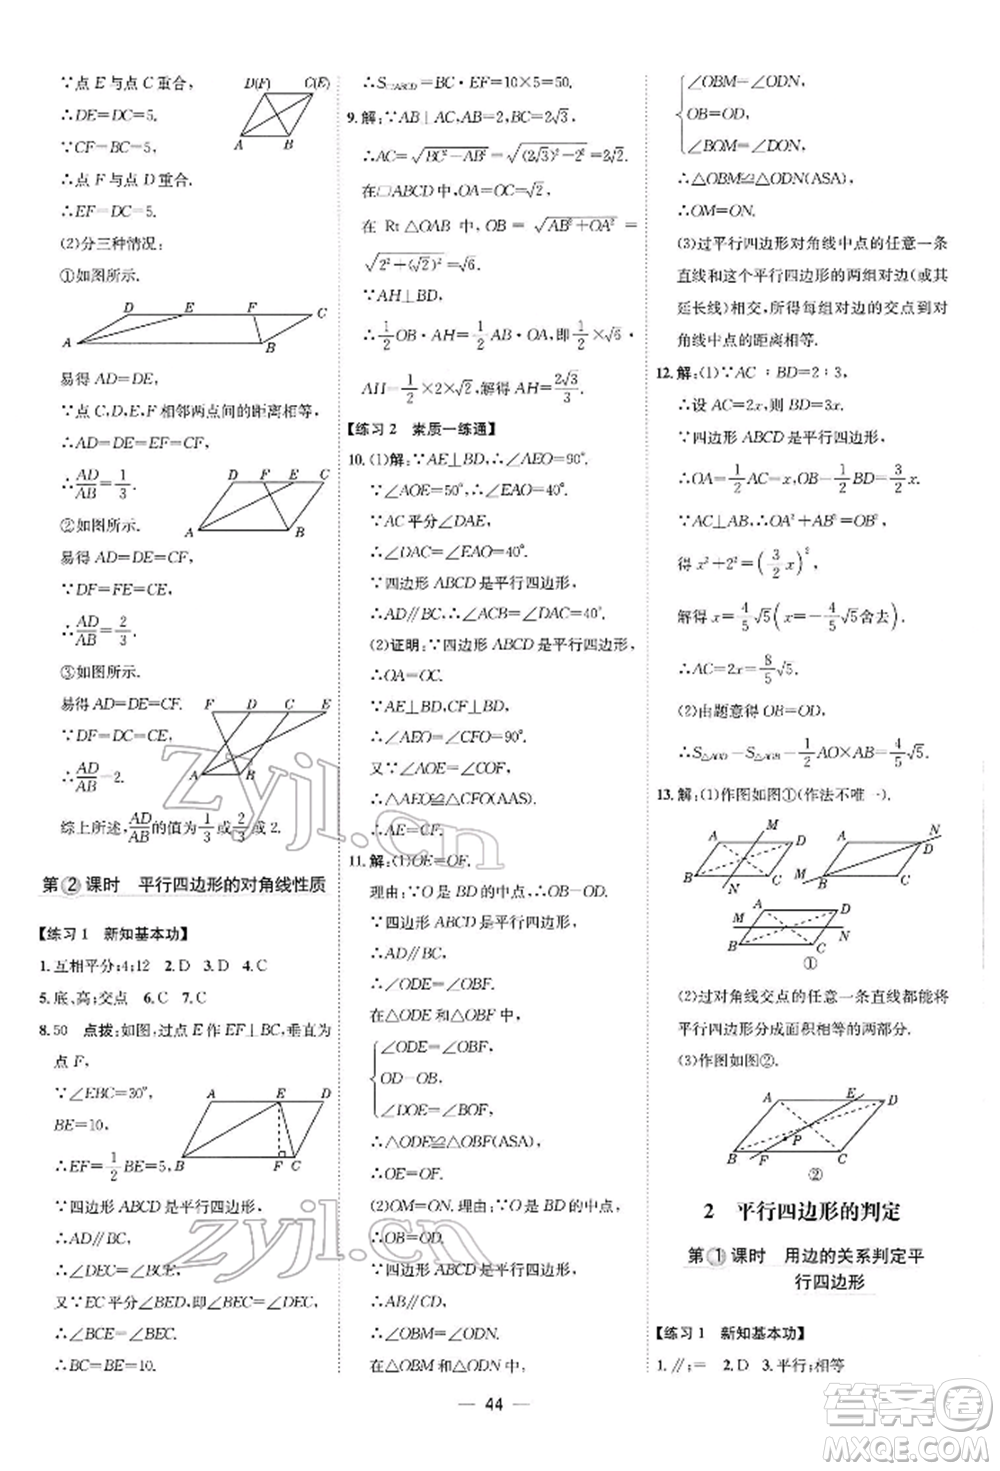 ∵点 E 与点 C 重合,
∴DE=DC=5.
∵CF=BC=5,
∴点 F 与点 D 重合,
∴EF=DC=5.
D(F) C(E)
A B
(2)分三种情况:
①如图所示.
D E F C
A B
易得 AD=DE,
∵点 C,D,E,F 相邻两点间的距离相等,
∴AD=DE=EF=CF,
∴AD/AB=1/3.
D F E C
A B
②如图所示.
易得 AD=DE=CF,
∵DF=FE=CE,
∴AD/AB=2/3.
③如图所示.
易得 AD=DE=CF.
F D C E
A B
∵DF=DC=CE,
∴AD/AB=2.
综上所述,AD/AB的值为1/3或2/3或2.
第②课时 平行四边形的对角线性质
【练习1 新知基本功】
1.互相平分;4;12 2.D 3.D 4.C
5.底、高;交点 6.C 7.C
8.50 点拨:如图,过点 E 作 EF⊥BC,垂直为
点 F,
∵∠EBC=30°,
BE=10,
A E D
B F C
∴EF=1/2BE=5,
∵四边形 ABCD 是平行四边形,
∴AD∥BC,
∴∠DEC=∠BCE,
又∵EC平分∠BED,即∠BEC=∠DEC,
∴∠BCE=∠BEC,
∴BE=BC=10.
∴S□ABCD=BC·EF=10×5=50.
9.解:∵AB⊥AC,AB=2,BC=2√3,
∴AC=√(BC²-AB²)=√((2√3)²-2²)=2√2.
在□ABCD 中,OA=OC=√2,
在 Rt△OAB 中,OB=√(AB²+OA²)=
√(2²+(√2)²)=√6.
∵AH⊥BD,
∴1/2OB·AH=1/2AB·OA,即1/2×√6·
AH=1/2×2×√2,解得 AH=2√3/3.
【练习2 素质一练通】
10.(1)解:∵AE⊥BD,∴∠AEO=90°.
∵∠AOE=50°,∴∠EAO=40°.
∵AC平分∠DAE,
∴∠DAC=∠EAO=40°.
∵四边形 ABCD 是平行四边形,
∴AD∥BC,∴∠ACB=∠DAC=40°.
(2)证明:∵四边形 ABCD 是平行四边形,
∴OA=OC.
∵AE⊥BD,CF⊥BD,
∴∠AEO=∠CFO=90°.
又∵∠AOE=∠COF,
∴△AEO≌△CFO(AAS).
∴AE=CF.
11.解:(1)OE=OF.
理由:∵O 是 BD 的中点,
∴OB=OD.
∵四边形 ABCD 是平行四边形,
∴AD∥BC,
∴∠ODE=∠OBF,
在△ODE 和△OBF 中,
∠ODE=∠OBF,
OD=OB,
∠DOE=∠BOF,
∴△ODE≌△OBF(ASA),
∴OE=OF.
(2)OM=ON. 理由:∵O 是 BD 的中点,
∴OB=OD.
∵四边形 ABCD 是平行四边形,
∴AB∥CD,
∴∠OBM=∠ODN.
在△OBM 和△ODN 中,
∠OBM=∠ODN,
OB=OD,
∠BOM=∠DON,
∴△OBM≌△ODN(ASA),
∴OM=ON.
(3)过平行四边形对角线中点的任意一条
直线和这个平行四边形的两组对边(或其
延长线)相交,所得每组对边的交点到对
角线中点的距离相等.
12.解:(1)∵AC∶BD=2∶3,
∴设 AC=2x,则 BD=3x.
∵四边形 ABCD 是平行四边形,
∴OA=1/2AC=x,OB=1/2BD=3/2x.
∵AC⊥AB,∴OA²+AB²=OB²,
得 x²+2²=(3/2x)²,
解得 x=4/5√5(x=-4/5√5舍去)
∴AC=2x=8/5√5.
(2)由题意得 OB=OD,
∴S△AOD=S△AOB=1/2AO×AB=4/5√5.
13.解:(1)作图如图①(作法不唯一).
A M D
B N C
A D N
M B C
A D
M N
B C
①
(2)过对角线交点的任意一条直线都能将
平行四边形分成面积相等的两部分.
(3)作图如图②.
A E D
P
B F C
②
2 平行四边形的判定
第①课时 用边的关系判定平
行四边形
【练习1 新知基本功】
1.∥;= 2.D 3.平行;相等
— 44 —
zyjl.cn
zyjl.cn
答案圈
MXQE.COM